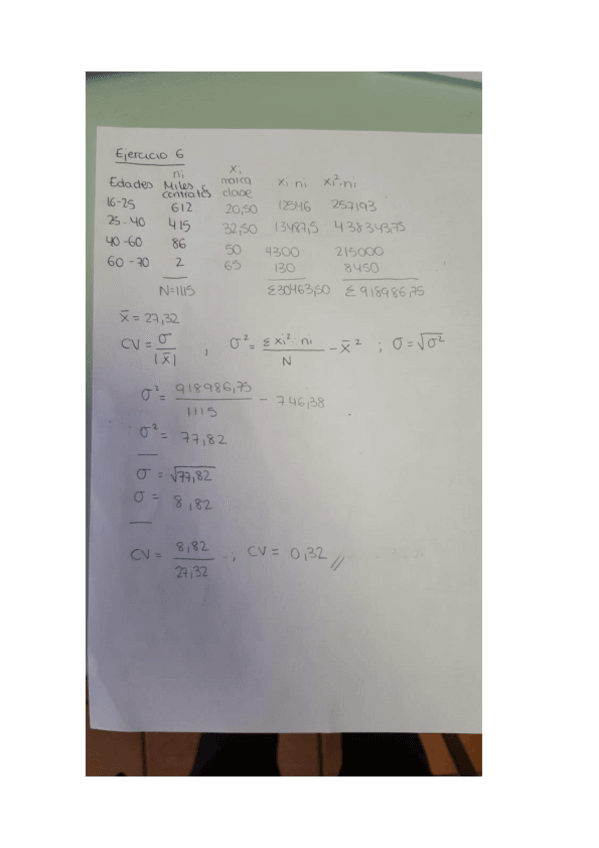 Ejercicio 6
Edades ni Miles contratos xi marca clase xi ni xi²·ni
16-25 612 20,50 12546 257193
25-40 415 32,50 13487,5 438343,75
40-60 86 50 4300 215000
60-70 2 65 130 8450
N=1115 Σ30463,50 Σ918986,75
x̄ = 27,32
CV = σ / |x̄| , σ² = Σxi² ni / N - x̄² ; σ = √σ²
σ² = 918986,75 / 1115 - 746,38
σ² = 77,82
σ = √77,82
σ = 8,82
CV = 8,82 / 27,32 ; CV = 0,32 //